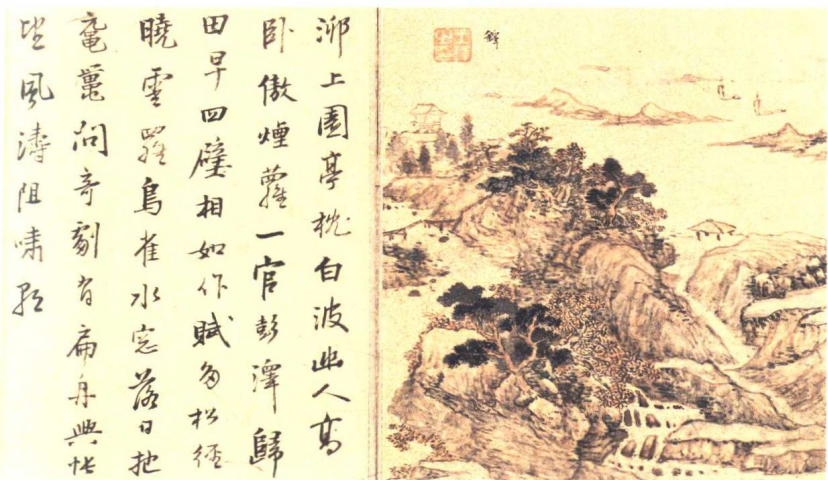 泖上園亭枕白波幽人高
卧傲煙蘿一官彭澤歸
田早四壁相如作賦多松徑
曉雲羅鳥雀水窓落日抱
黿鼉問奇劇有扁舟興悵
望風濤阻嘯歌